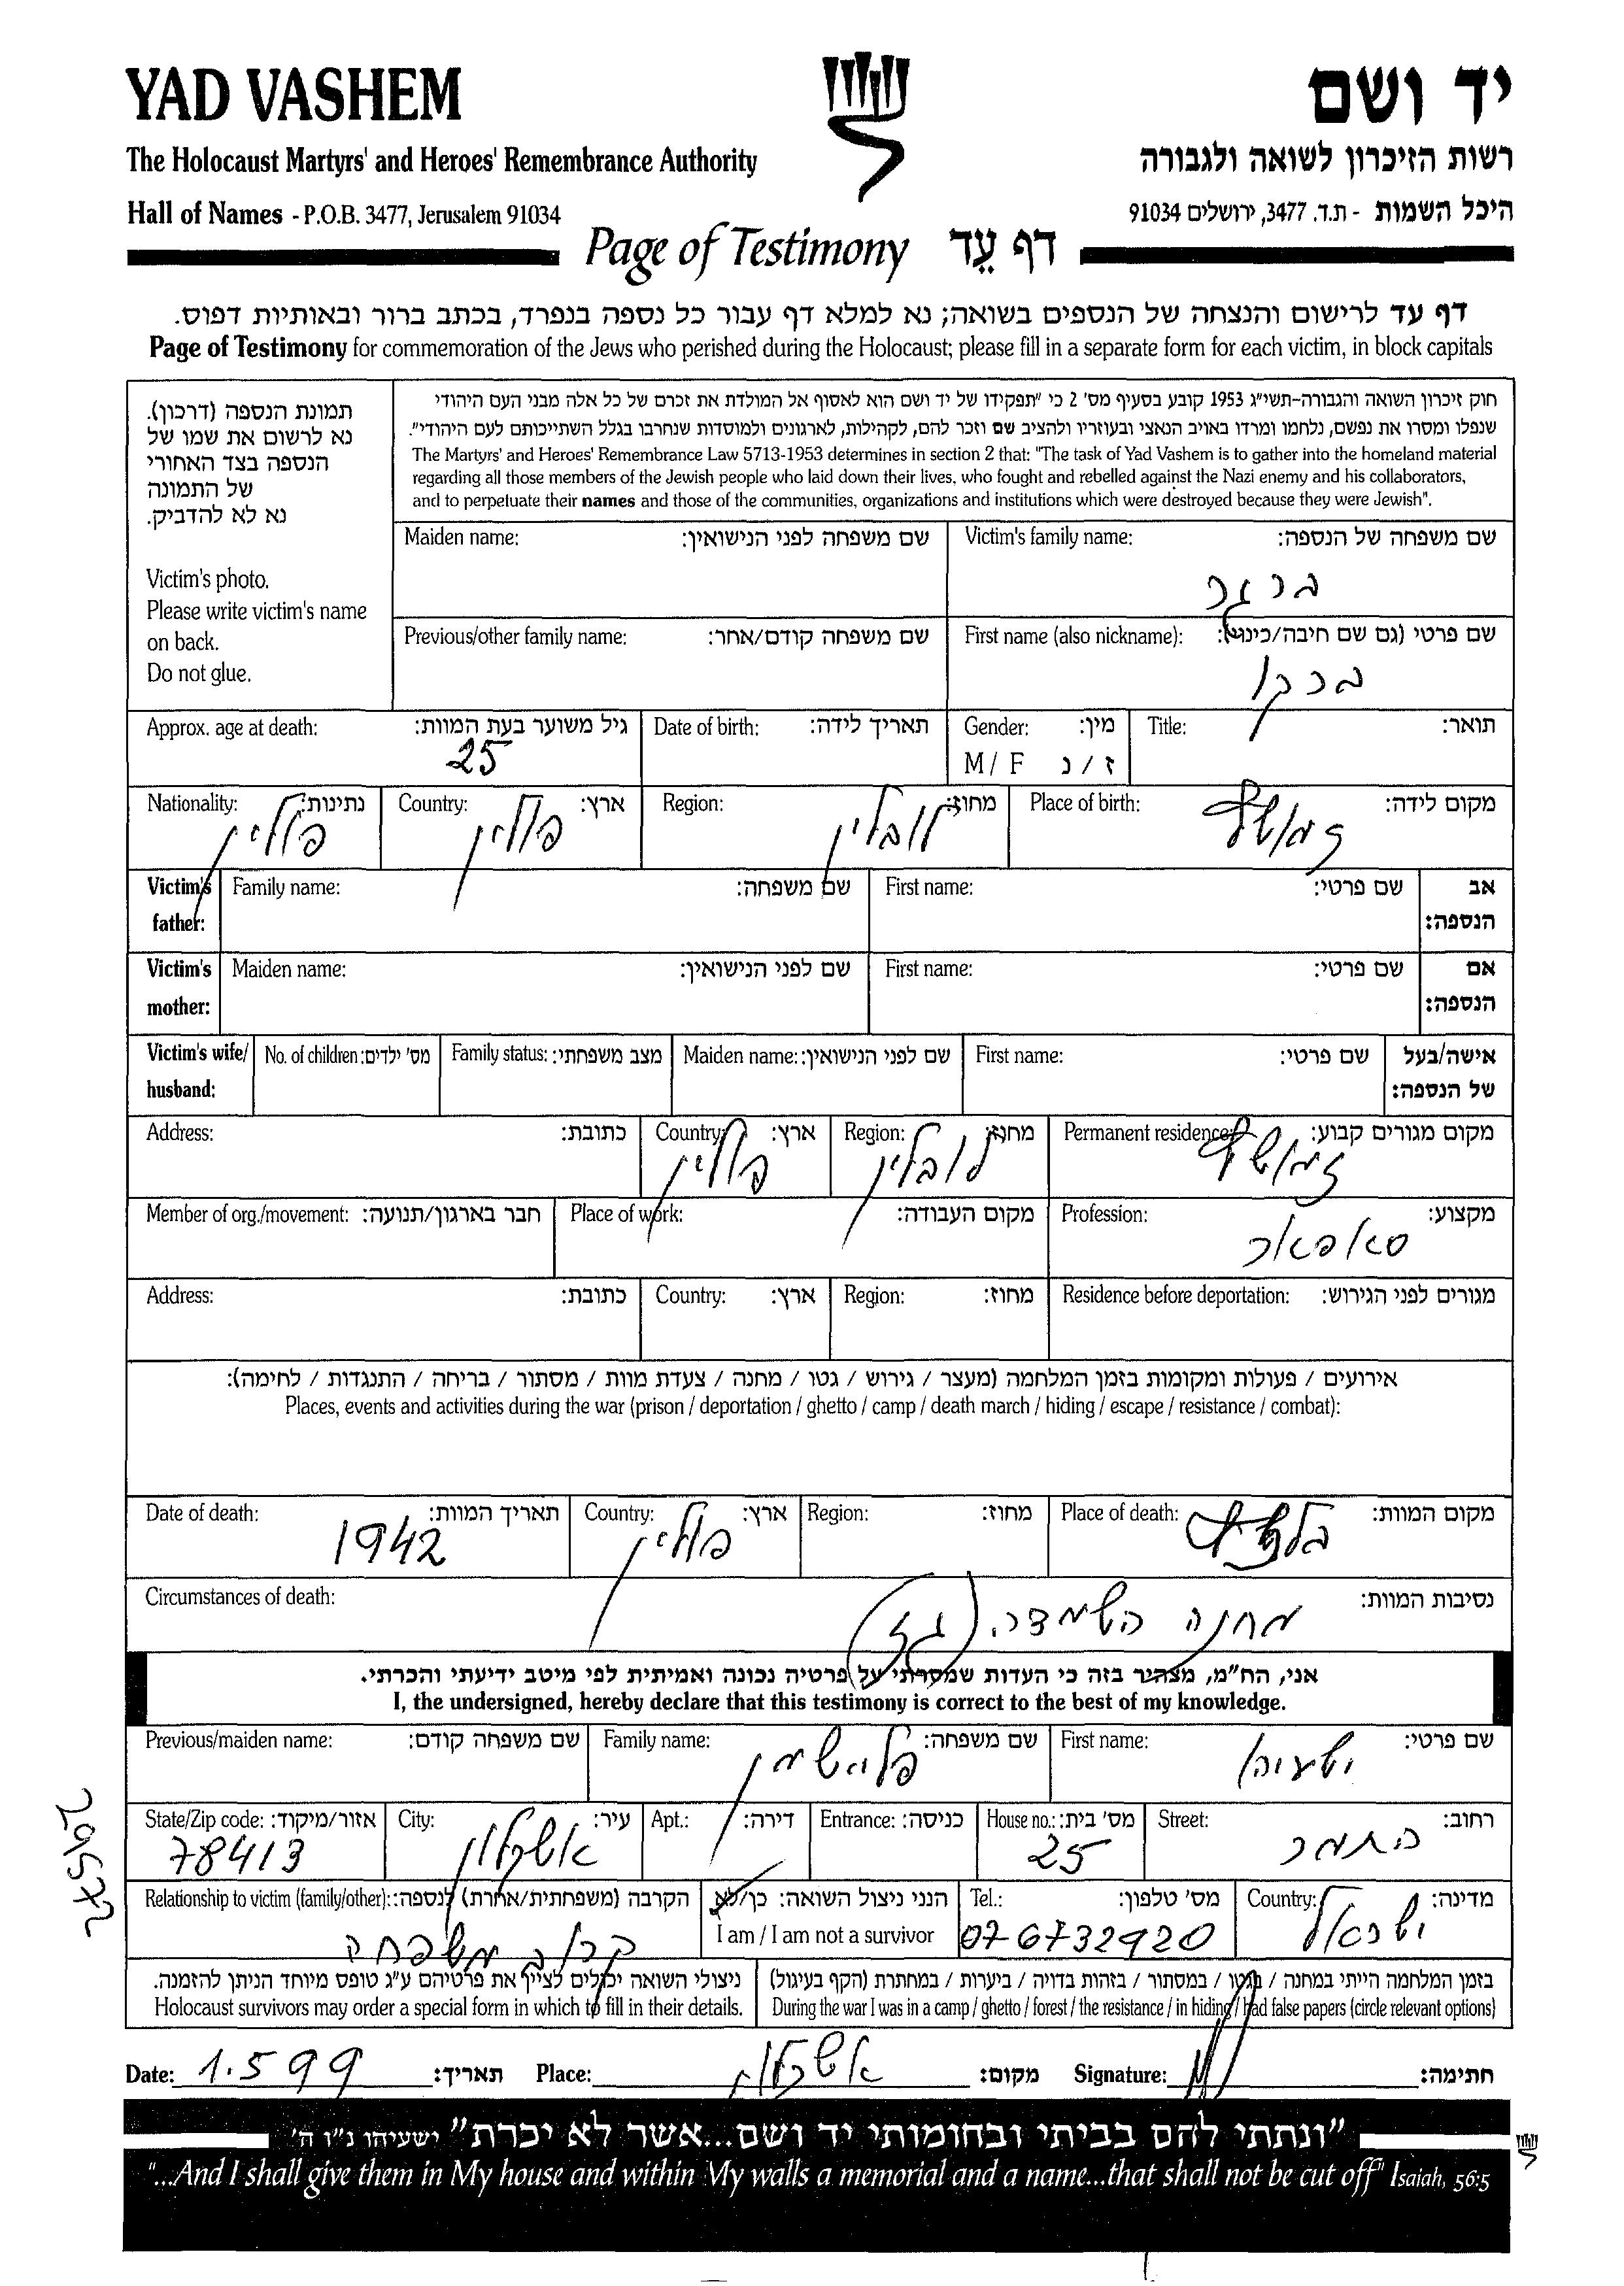 YAD VASHEM יד ושם
The Holocaust Martyrs' and Heroes' Remembrance Authority רשות הזיכרון לשואה ולגבורה
Hall of Names - P.O.B. 3477, Jerusalem 91034 היכל השמות - ת.ד. 3477, ירושלים 91034
Page of Testimony דף עֵד
דף עד לרישום והנצחה של הנספים בשואה; נא למלא דף עבור כל נספה בנפרד, בכתב ברור ובאותיות דפוס.
Page of Testimony for commemoration of the Jews who perished during the Holocaust; please fill in a separate form for each victim, in block capitals
תמונת הנספה (דרכון).
נא לרשום את שמו של
הנספה בצד האחורי
של התמונה
נא לא להדביק.
Victim's photo.
Please write victim's name
on back.
Do not glue.
חוק זיכרון השואה והגבורה-תשי"ג 1953 קובע בסעיף מס' 2 כי "תפקידו של יד ושם הוא לאסוף אל המולדת את זכרם של כל אלה מבני העם היהודי
שנפלו ומסרו את נפשם, נלחמו ומרדו באויב הנאצי ובעוזריו ולהציב שם וזכר להם, לקהילות, לארגונים ולמוסדות שנחרבו בגלל השתייכותם לעם היהודי".
The Martyrs' and Heroes' Remembrance Law 5713-1953 determines in section 2 that: "The task of Yad Vashem is to gather into the homeland material
regarding all those members of the Jewish people who laid down their lives, who fought and rebelled against the Nazi enemy and his collaborators,
and to perpetuate their names and those of the communities, organizations and institutions which were destroyed because they were Jewish".
Maiden name: שם משפחה לפני הנישואין: Victim's family name: שם משפחה של הנספה:
ברגר
Previous/other family name: שם משפחה קודם/אחר: First name (also nickname): שם פרטי (גם שם חיבה/כינוי):
ברקו
Approx. age at death: גיל משוער בעת המוות: Date of birth: תאריך לידה: Gender: מין: Title: תואר:
25 M / F ז / נ
Nationality: נתינות: Country: ארץ: Region: מחוז: Place of birth: מקום לידה:
פולין פולין לובלין זמושץ
Victim's father: Family name: שם משפחה: First name: שם פרטי: אב הנספה:
Victim's mother: Maiden name: שם לפני הנישואין: First name: שם פרטי: אם הנספה:
Victim's wife/ husband: No. of children: מס' ילדים: Family status: מצב משפחתי: Maiden name: שם לפני הנישואין: First name: שם פרטי: אישה/בעל של הנספה:
Address: כתובת: Country: ארץ: Region: מחוז: Permanent residence: מקום מגורים קבוע:
פולין לובלין זמושץ
Member of org./movement: חבר בארגון/תנועה: Place of work: מקום העבודה: Profession: מקצוע:
Address: כתובת: Country: ארץ: Region: מחוז: Residence before deportation: מגורים לפני הגירוש:
אירועים / פעולות ומקומות בזמן המלחמה (מעצר / גירוש / גטו / מחנה / צעדת מוות / מסתור / בריחה / התנגדות / לחימה):
Places, events and activities during the war (prison / deportation / ghetto / camp / death march / hiding / escape / resistance / combat):
Date of death: תאריך המוות: Country: ארץ: Region: מחוז: Place of death: מקום המוות:
1942 פולין בלז'ץ
Circumstances of death: נסיבות המוות:
מחנה השמדה. (גז)
אני, הח"מ, מצהיר בזה כי העדות שמסרתי על פרטיה נכונה ואמיתית לפי מיטב ידיעתי והכרתי.
I, the undersigned, hereby declare that this testimony is correct to the best of my knowledge.
Previous/maiden name: שם משפחה קודם: Family name: שם משפחה: First name: שם פרטי:
פליישמן ישעיהו
State/Zip code: אזור/מיקוד: City: עיר: Apt.: דירה: Entrance: כניסה: House no.: מס' בית: Street: רחוב:
78413 אשקלון 25 התמר
Relationship to victim (family/other): הקרבה (משפחתית/אחרת) לנספה: הנני ניצול השואה: כן/לא Tel.: מס' טלפון: Country: מדינה:
קרוב משפחה I am / I am not a survivor 07 6732920 ישראל
ניצולי השואה יכולים לציין את פרטיהם ע"ג טופס מיוחד הניתן להזמנה. בזמן המלחמה הייתי במחנה / בגטו / במסתור / בזהות בדויה / ביערות / במחתרת (הקף בעיגול)
Holocaust survivors may order a special form in which to fill in their details. During the war I was in a camp / ghetto / forest / the resistance / in hiding / had false papers (circle relevant options)
Date: 1.5 99 תאריך: Place: אשקלון מקום: Signature: חתימה:
"ונתתי להם בביתי ובחומותי יד ושם...אשר לא יכרת" ישעיהו נ"ו ה'
"...And I shall give them in My house and within My walls a memorial and a name...that shall not be cut off" Isaiah, 56:5
295672